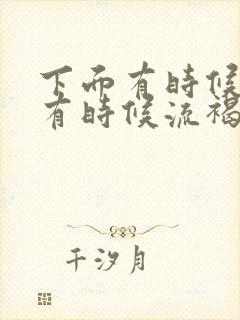 下面有時候
有時候流褐
千汐月